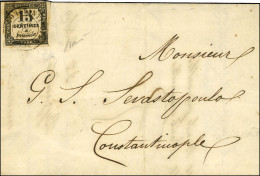 15
CENTIMES
à
percevoir
Monsieur
G. S. Sevdstopoulo
Constantinople